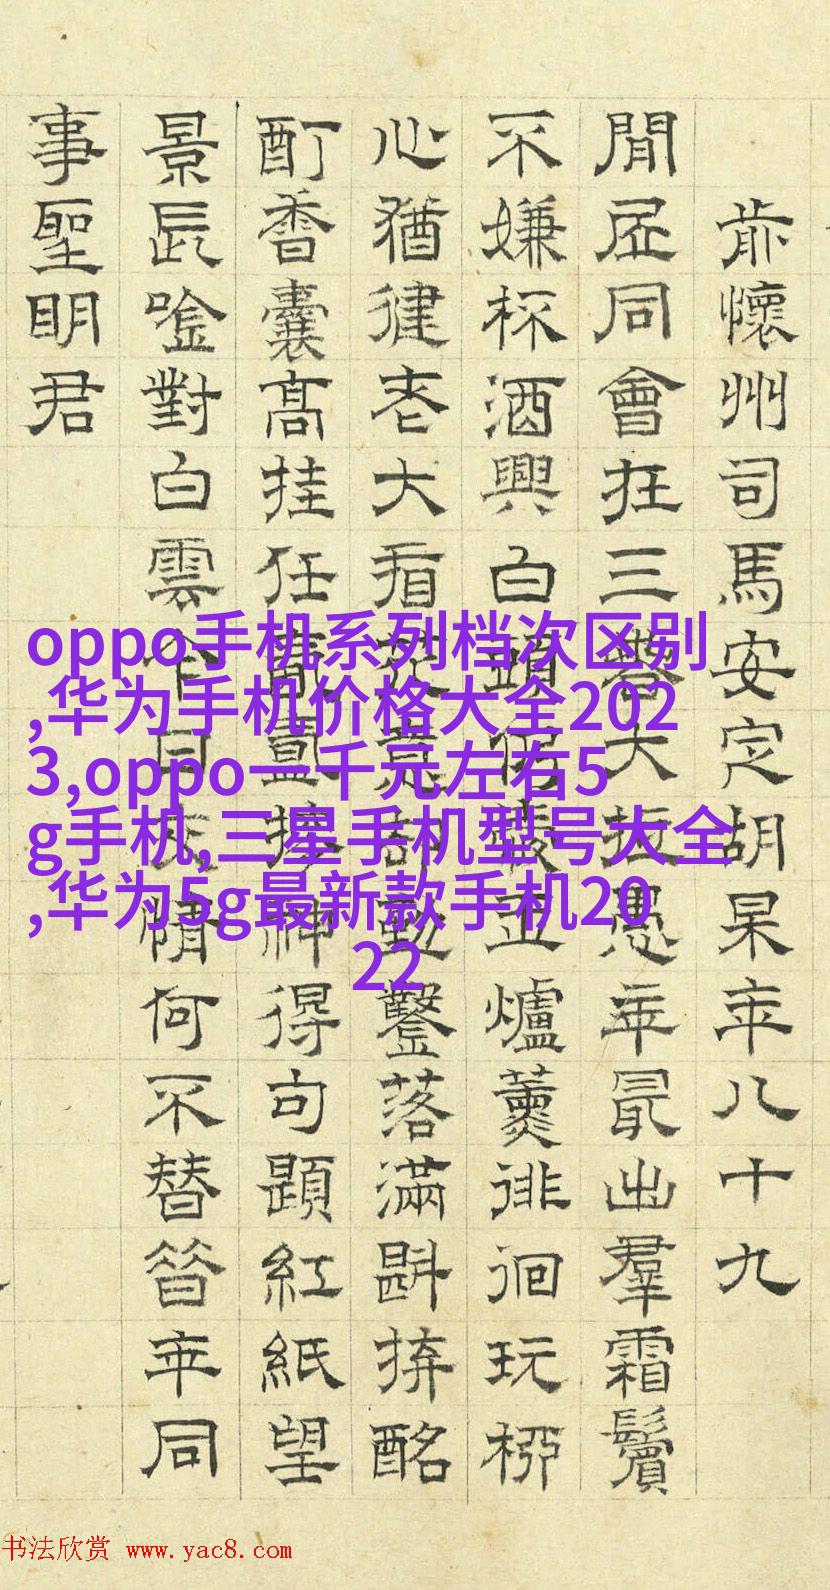 前懷州司馬安定胡杲年八十九
閒居同會在三春大抵愚年最出羣霜鬢
不嫌杯酒興白頭仍愛玉爐薰徘徊玩柳
心猶健老大看花意卻勤鑿落滿斟拚酩
酊香囊高挂任搜神得句題紅紙望
景長唫對白雲今日交情何不替齊年同
事聖明君
oppo手机系列档次区别
,华为手机价格大全202
3,oppo一千元左右5
g手机,三星手机型号大全
,华为5g最新款手机20
22
书法欣赏 www.yac8.com